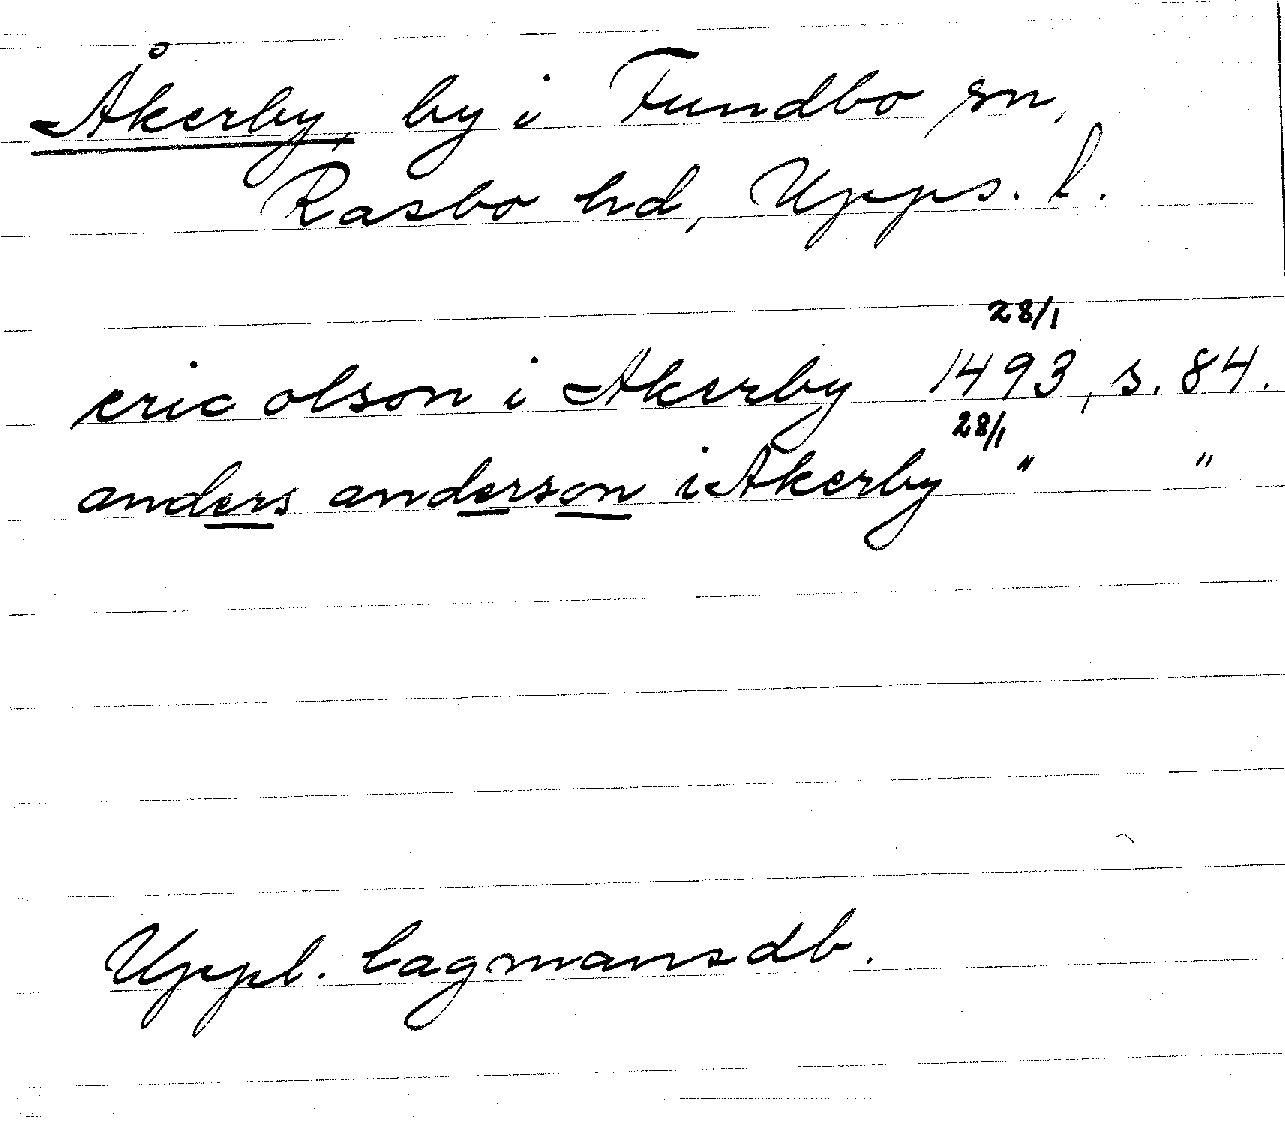 Åkerby, by i Fundbo sn,
Rasbo hd, Upps. l.
28/1
eric olson i Akerby 1493, s. 84.
28/1
anders anderson i Akerby " "
Uppl. lagmansdb.